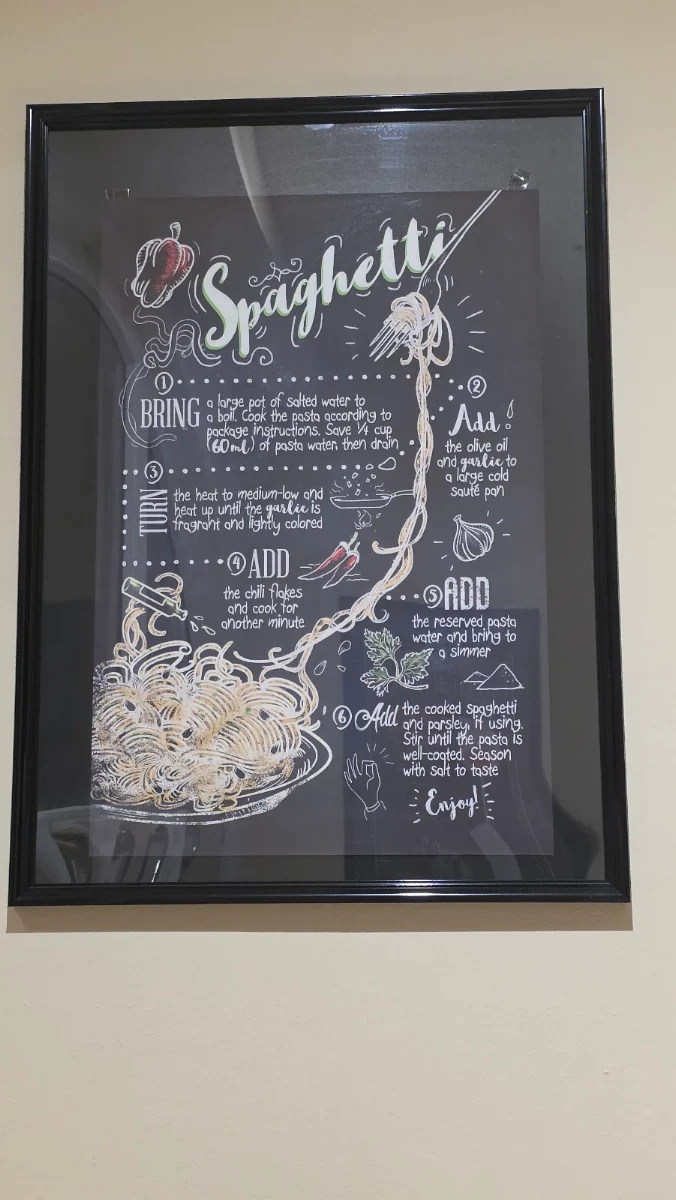 Spaghetti
1
BRING
a large pot of salted water to
a boil. Cook the pasta according to
package instructions. Save ¼ cup
(60ml) of pasta water, then drain
2
Add
the olive oil
and garlic to
a large cold
sauté pan
3
TURN
the heat to medium-low and
heat up until the garlic is
fragrant and lightly colored
4 ADD
the chili flakes
and cook for
another minute
5 ADD
the reserved pasta
water and bring to
a simmer
6 Add
the cooked spaghetti
and parsley, if using.
Stir until the pasta is
well-coated. Season
with salt to taste
Enjoy!